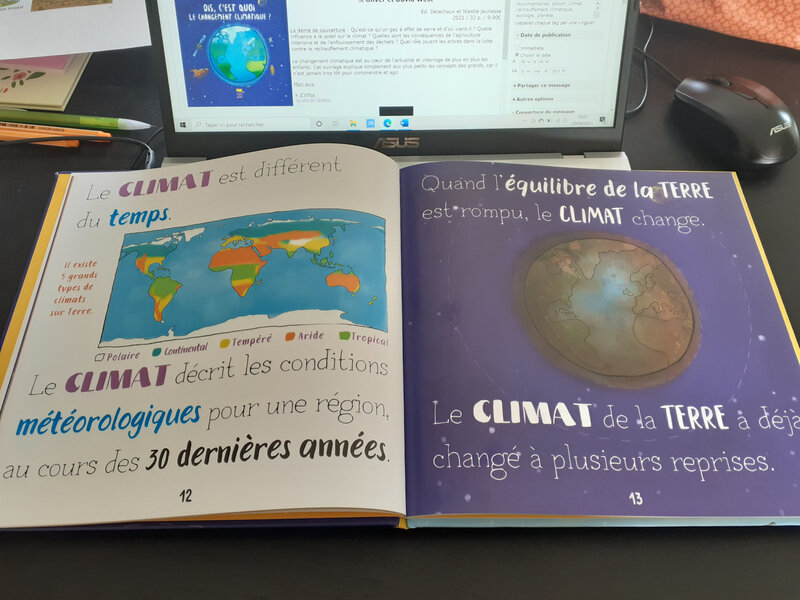 DIS, C'EST QUOI
LE CHANGEMENT CLIMATIQUE ?
Ed. Delachaux et Niestlé jeunesse
2021 / 32 p. / 9,90€
La 4ème de couverture : Qu'est-ce qu'un gaz à effet de serre et d'où vient-il ? Quelle
influence a le soleil sur le climat ? Quelles sont les conséquences de l'agriculture
intensive et de l'enfouissement des déchets ? Quel rôle jouent les arbres dans la lutte
contre le réchauffement climatique ?
Le changement climatique est au cœur de l'actualité et interroge de plus en plus les
enfants. Cet ouvrage explique simplement aux plus petits les concepts des grands, car il
n'est jamais trop tôt pour comprendre et agir.
Mon avis
+ d'infos
documentaires, album, climat,
réchauffement climatique,
écologie, planète
Date de publication
Immédiate
Choisir la date
Partager ce message
Autres options
Couverture du message
Taper ici pour rechercher
ASUS
ASUS
Le CLIMAT est différent
du temps.
Il existe
5 grands
types de
climats
sur Terre.
Polaire Continental Tempéré Aride Tropical
Le CLIMAT décrit les conditions
météorologiques pour une région,
au cours des 30 dernières années.
12
Quand l'équilibre de la TERRE
est rompu, le CLIMAT change.
Le CLIMAT de la TERRE a déjà
changé à plusieurs reprises.
13